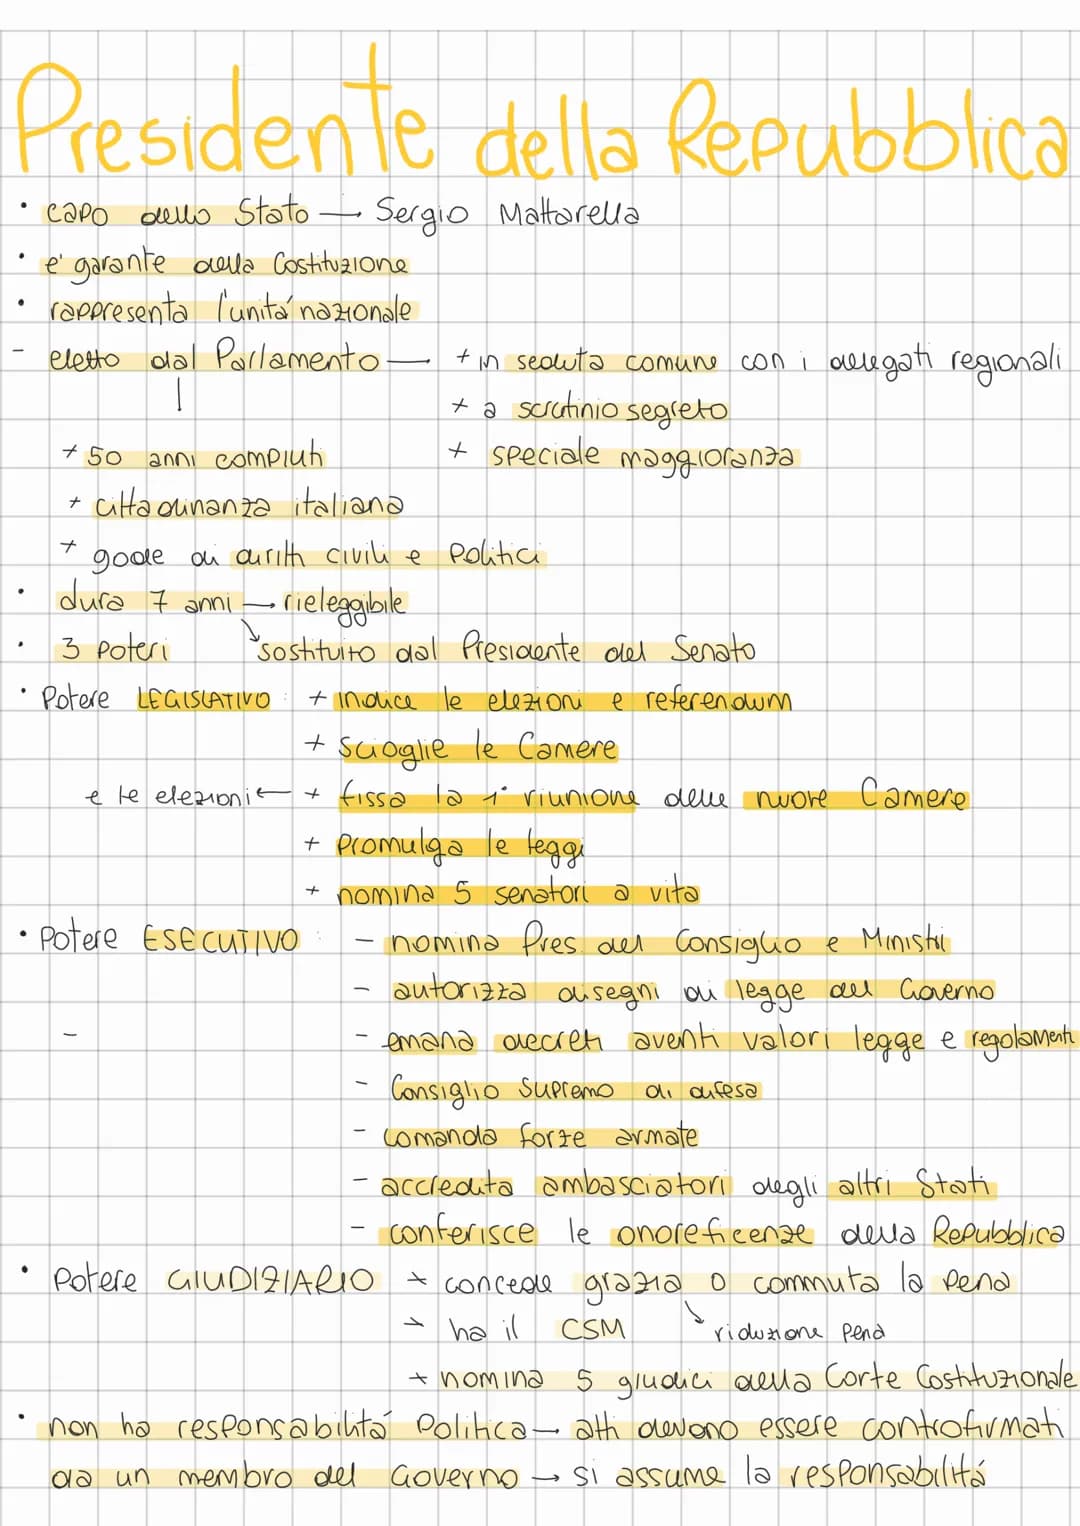 Presidente della Repubblica
• capo dello Stato → Sergio Mattarella
• e' garante della Costituzione
• rappresenta l'unitá nazionale
- eletto dal Parlamento — + in seduta comune con i delegati regionali
+ a scrutinio segreto
+ 50 anni compiuti + speciale maggioranza
+ cittadinanza italiana
+ gode di diritti civili e politici
• dura 7 anni → rieleggibile
• 3 poteri sostituito dal Presidente del Senato
• Potere LEGISLATIVO : + indice le elezioni e referendum
+ scioglie le Camere
e le elezioni ← + fissa la 1° riunione delle nuove Camere
+ promulga le leggi
+ nomina 5 senatori a vita
• Potere ESECUTIVO : - nomina Pres. del Consiglio e Ministri
- autorizza disegni di legge del Governo
- - emana decreti aventi valori legge e regolamenti
- Consiglio supremo di difesa
- comanda forze armate
- accredita ambasciatori degli altri Stati
- conferisce le onoreficenze della Repubblica
• Potere GIUDIZIARIO + concede grazia o commuta la pena
+ ha il CSM riduzione pena
+ nomina 5 giudici della Corte Costituzionale
• non ha responsabilitá politica → atti devono essere controfirmati
da un membro del Governo → si assume la responsabilitá